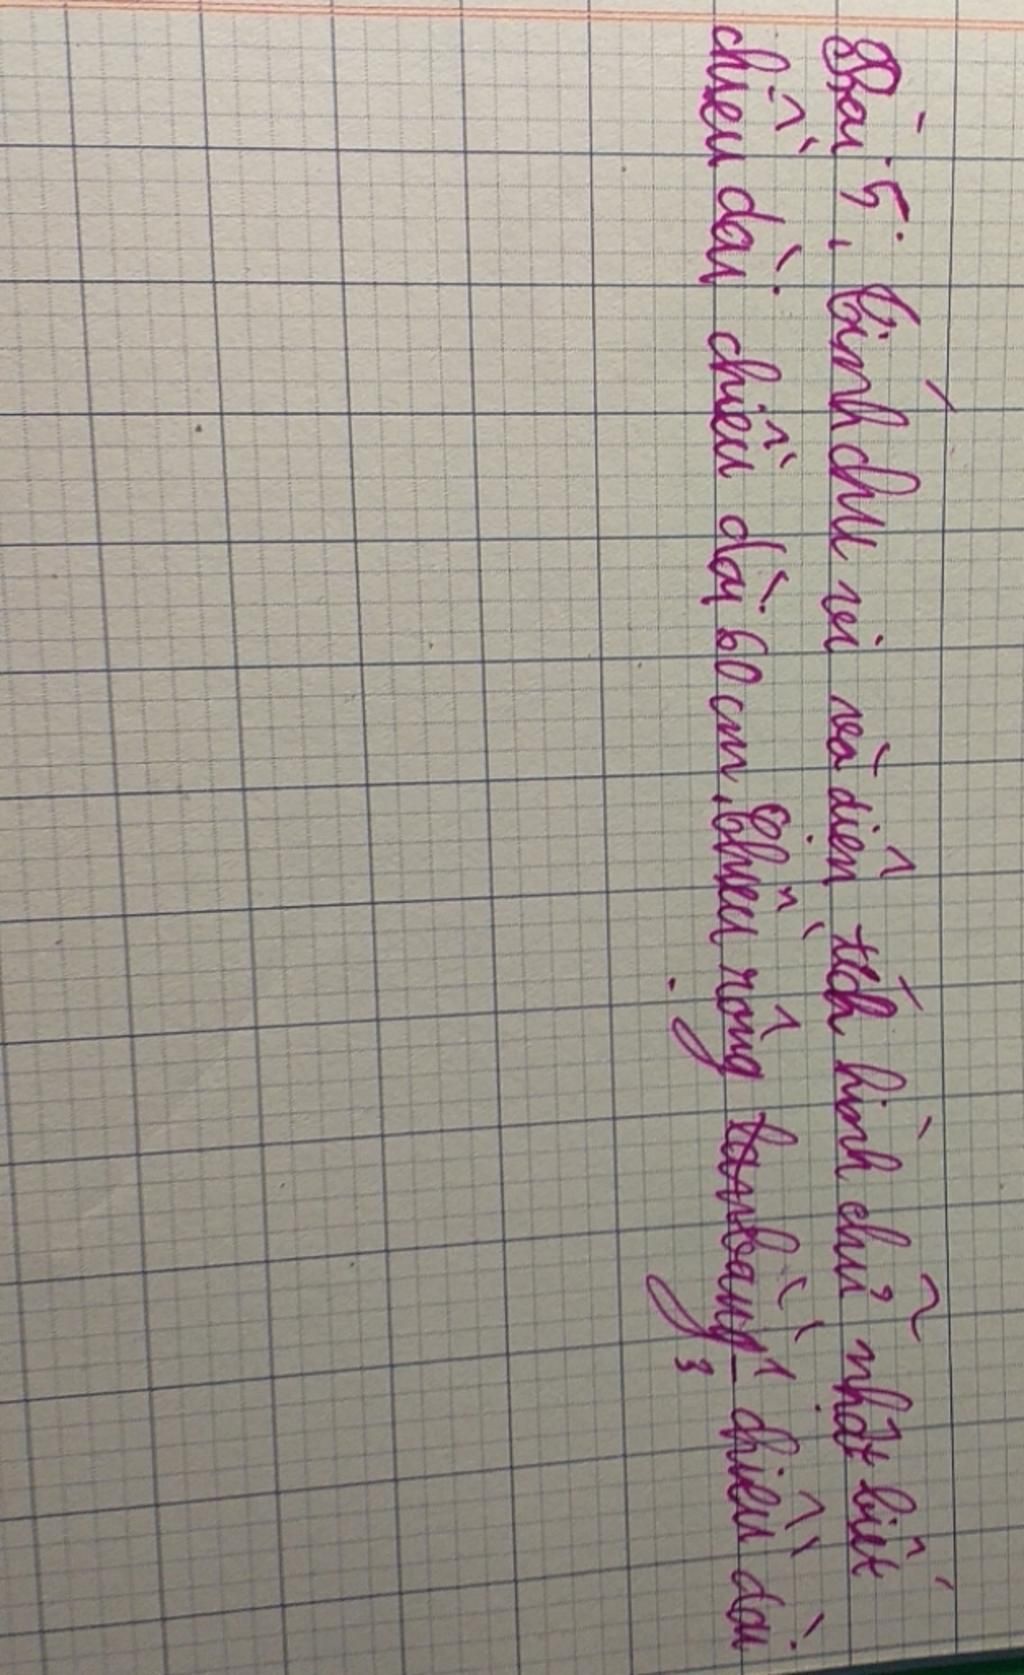 Bài 5: Tính chu vi và diện tích hình chữ nhật biết
chiều dài chiều dài 60cm, chiều rộng bằng 1/3 chiều dài